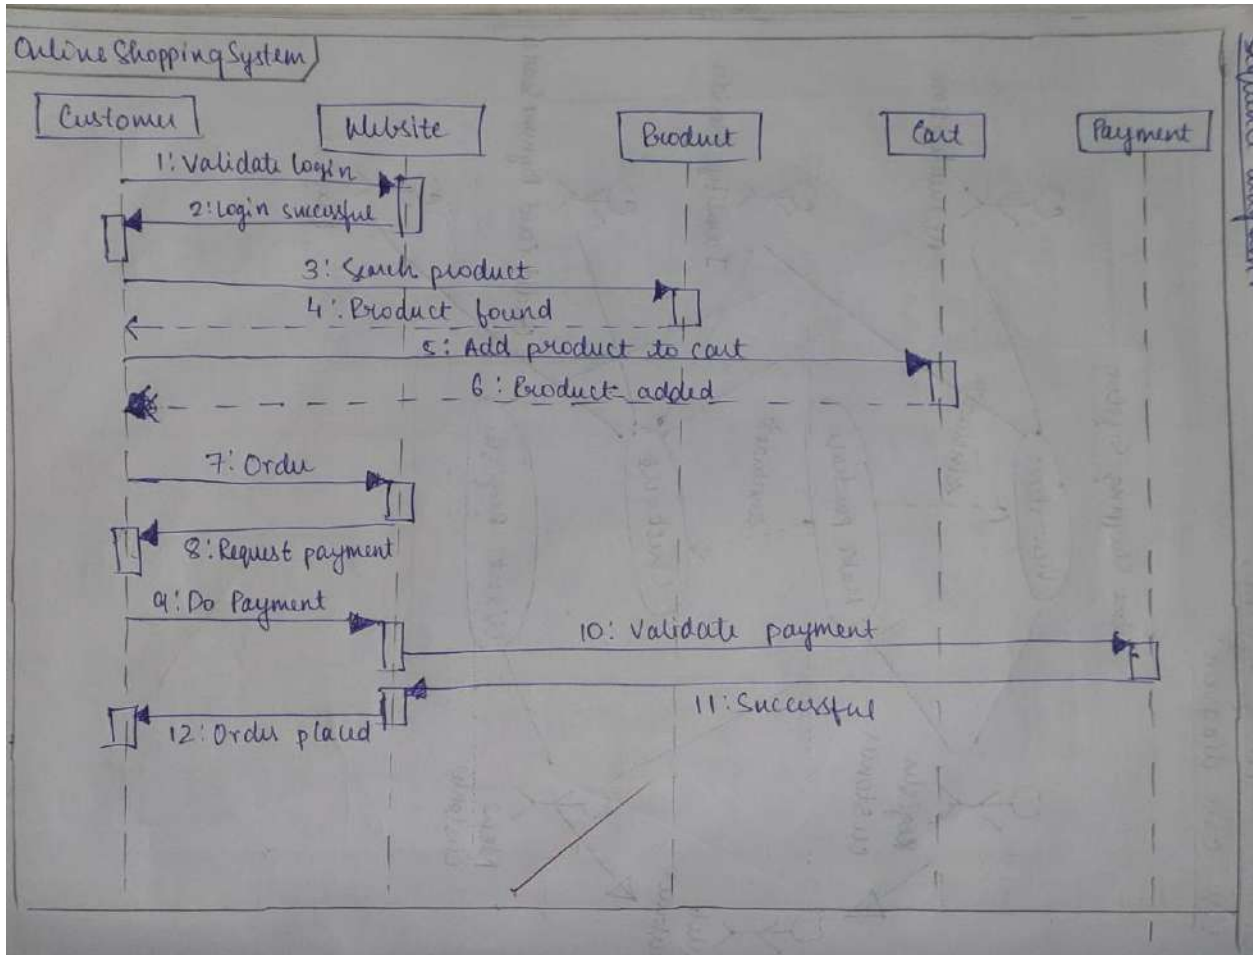 Online Shopping System
Customer
Website
Product
Cart
Payment
1: Validate login
2: Login successful
3: Search product
4: Product found
5: Add product to cart
6: Product added
7: Order
8: Request payment
9: Do Payment
10: Validate payment
11: Successful
12: Order placed